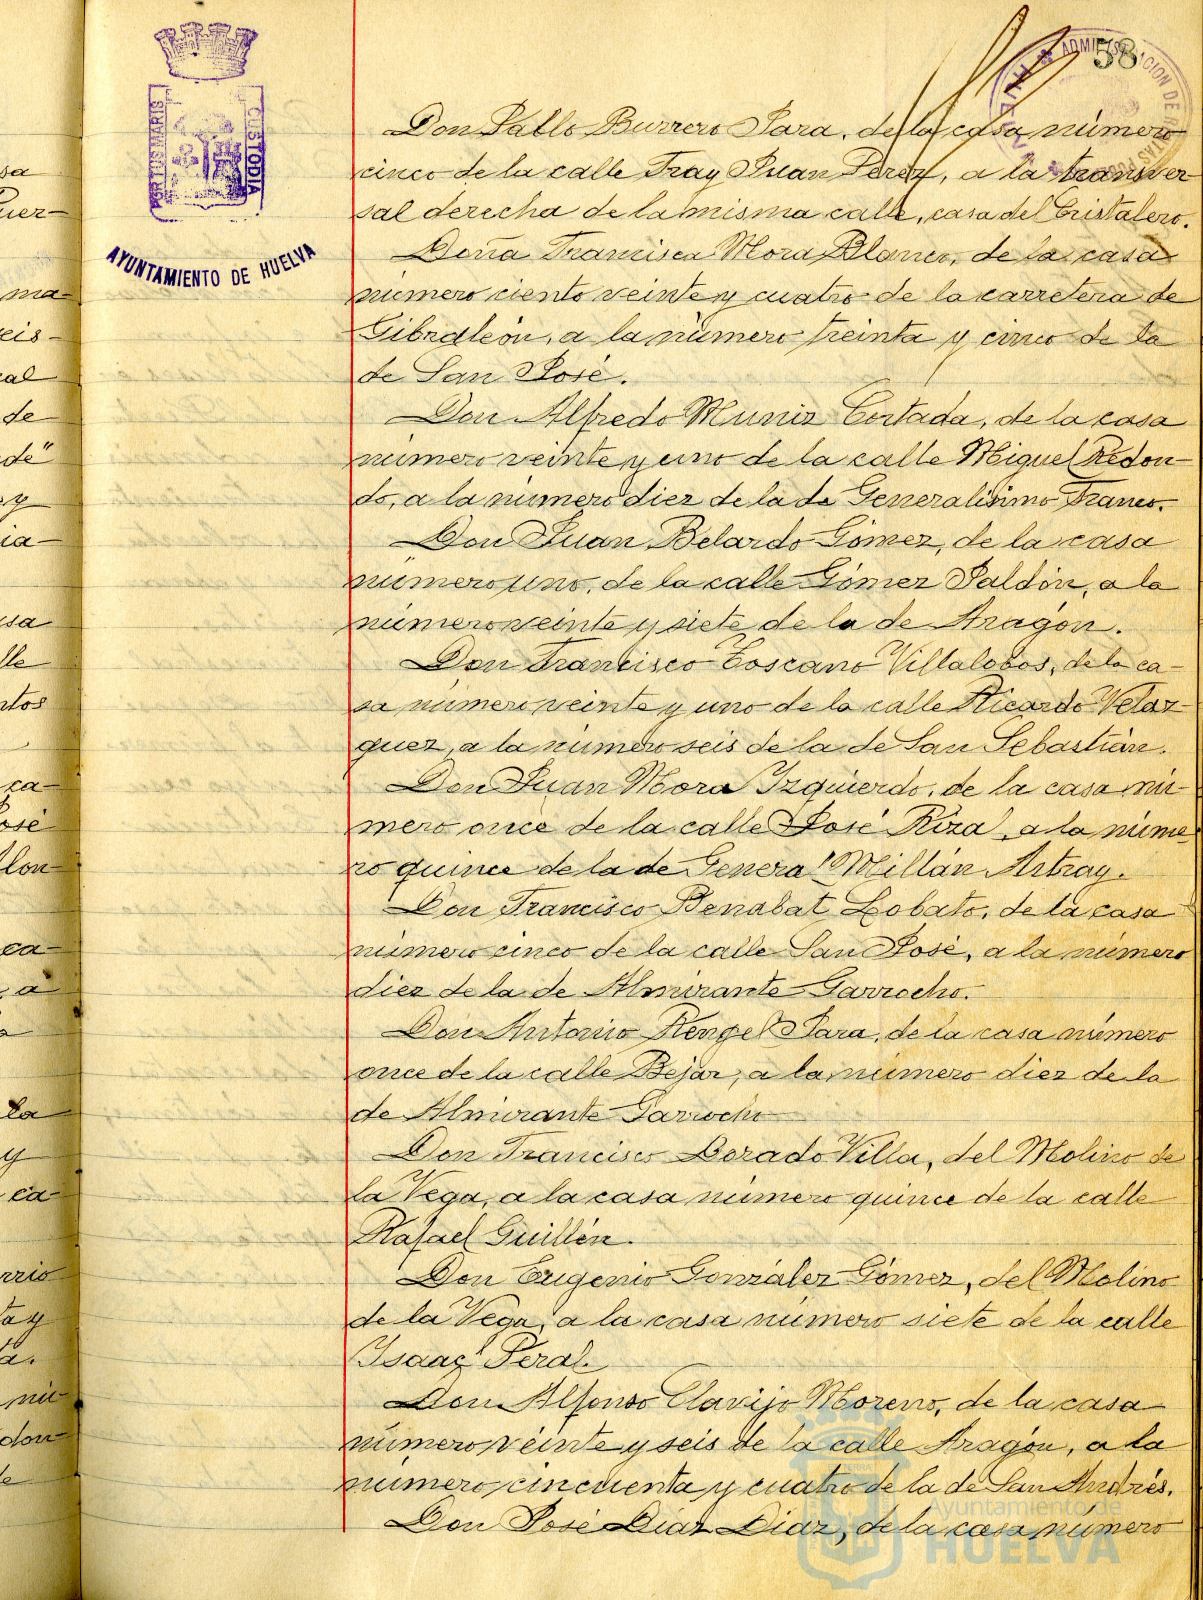 58
ADMINISTRACION DE RENTAS
HUELVA
PORTUS MARIS
CUSTODIA
AYUNTAMIENTO DE HUELVA
Don Pablo Burrero Para, de la casa número
cinco de la calle Fray Juan Perez, a la transver-
sal derecha de la misma calle, casa del Cristalero.
Doña Francisca Mora Blanco, de la casa
número ciento veinte y cuatro de la carretera de
Gibraleón, a la número treinta y cinco de la
de San José.
Don Alfredo Muniz Cortada, de la casa
número veinte y uno de la calle Miguel Redon-
do, a la número diez de la de Generalísimo Franco.
Don Juan Belardo Gómez, de la casa
número uno, de la calle Gómez Jaldón, a la
número veinte y siete de la de Aragón.
Don Francisco Toscano Villalobos, de la ca-
sa número veinte y uno de la calle Ricardo Velaz-
quez, a la número seis de la de San Sebastián.
Don Juan Mora Izquierdo, de la casa nú-
mero once de la calle José Riza, a la núme-
ro quince de la de General Millán Astray.
Don Francisco Benabat Lobato, de la casa
número cinco de la calle San José, a la número
diez de la de Almirante Garrocho.
Don Antonio Rengel Para, de la casa número
once de la calle Bejar, a la número diez de la
de Almirante Garrocho
Don Francisco Dorado Villa, del Molino de
la Vega, a la casa número quince de la calle
Rafael Guillén.
Don Eugenio González Gómez, del Molino
de la Vega, a la casa número siete de la calle
Isaac Peral.
Don Alfonso Clavijo Moreno, de la casa
número veinte y seis de la calle Aragón, a la
número cincuenta y cuatro de la de San Andrés.
Don José Díaz Díaz, de la casa número
Ayuntamiento de
HUELVA